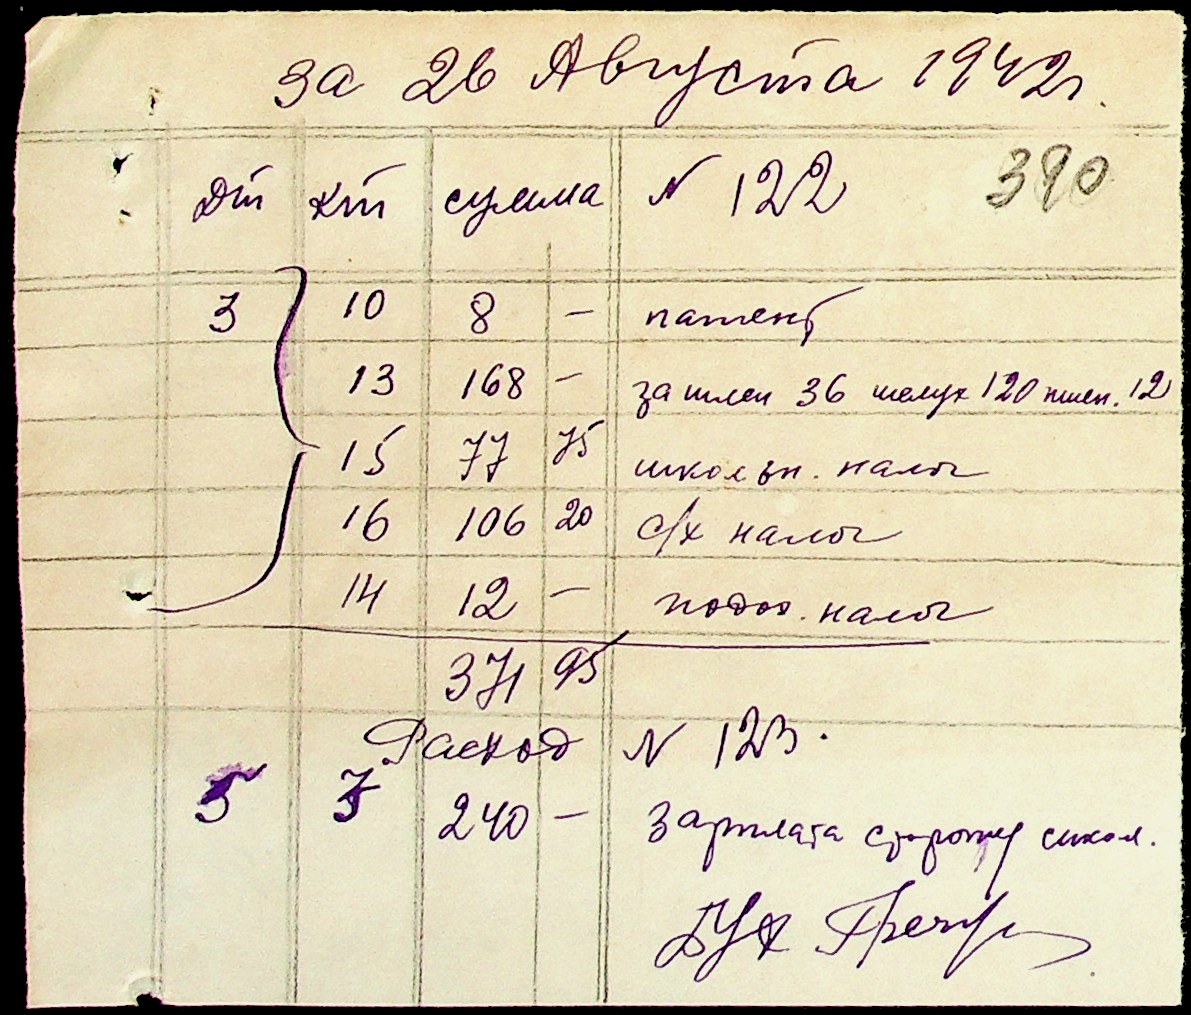 за 26 Августа 1942 г.
Дт Кт сумма № 122 390
3 10 8 – патент
13 168 – за шлен 36 шелух 120 пшен. 12
15 77 75 школьн. налог
16 106 20 с/х налог
14 12 – подох. налог
371 95
Расход № 123.
5 3 240 – Зарплата сторожу школ.
Бух